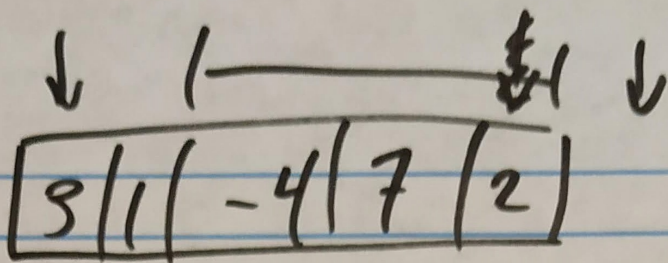 3 | 1 | -4 | 7 | 2